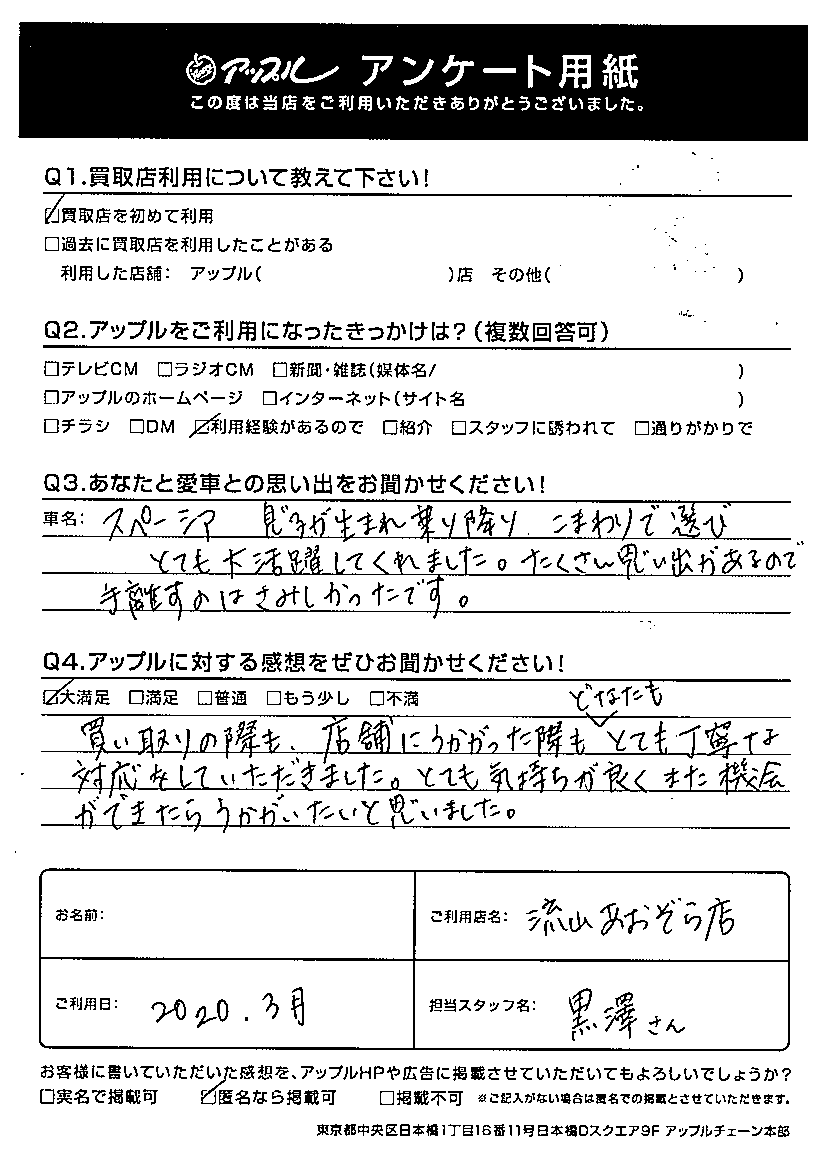 アップル アンケート用紙
この度は当店をご利用いただきありがとうございました。
Q1.買取店利用について教えて下さい!
☑買取店を初めて利用
□過去に買取店を利用したことがある
利用した店舗: アップル( )店 その他( )
Q2.アップルをご利用になったきっかけは?(複数回答可)
□テレビCM □ラジオCM □新聞・雑誌(媒体名/ )
□アップルのホームページ □インターネット(サイト名 )
□チラシ □DM ☑利用経験があるので □紹介 □スタッフに誘われて □通りがかりで
Q3.あなたと愛車との思い出をお聞かせください!
車名: スペーシア 息子が生まれ乗り降り、こまわりで選び
とても大活躍してくれました。たくさん思い出があるので
手離すのはさみしかったです。
Q4.アップルに対する感想をぜひお聞かせください!
☑大満足 □満足 □普通 □もう少し □不満
どなたも
買い取りの際も、店舗にうかがった際もとても丁寧な
対応をしていただきました。とても気持ちが良くまた機会
ができたらうかがいたいと思いました。
お名前:
ご利用店名: 流山あおぞら店
ご利用日: 2020.3月
担当スタッフ名: 黒澤さん
お客様に書いていただいた感想を、アップルHPや広告に掲載させていただいてもよろしいでしょうか?
□実名で掲載可 ☑匿名なら掲載可 □掲載不可 ※ご記入がない場合は匿名での掲載とさせていただきます。
東京都中央区日本橋1丁目16番11号日本橋Dスクエア9F アップルチェーン本部